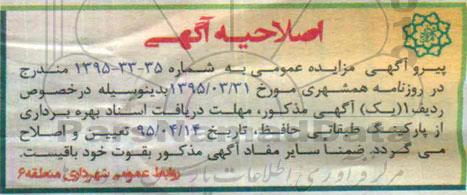 اصلاحیه آگهی
پیرو آگهی مزایده عمومی به شماره ۳۵-۳۳-۱۳۹۵ مندرج
در روزنامه همشهری مورخ ۱۳۹۵/۰۳/۳۱ بدینوسیله درخصوص
ردیف ۱(یک) آگهی مذکور، مهلت دریافت اسناد بهره برداری
از پارکینگ طبقاتی حافظ، تاریخ ۹۵/۰۴/۱۴ تعیین و اصلاح
می گردد. ضمنا سایر مفاد آگهی مذکور بقوت خود باقیست.
روابط عمومی شهرداری منطقه۶